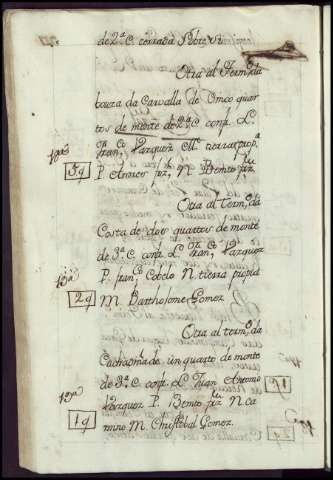 de 2ª C. cerrada
Otra al Term.º da
bouza da Carvalla de cinco quar
tos de monte de 2ª C. conf. L.
Fran.co Vazquez M. tierra propª
5q P. Andres N. Benito
Otra al Term.º da
Costa de dos quartos de monte
de 3ª C. conf. L. Fran.co Vazquez
P. Fran.co Cobelo N. tierra propia
2q M. Bartholome Gomez
Otra al term.º da
de un quarto de monte
de 3ª C. conf. L. Juan Antonio
Vazquez P. Benito N. ca
1q mino M. Christobal Gomez